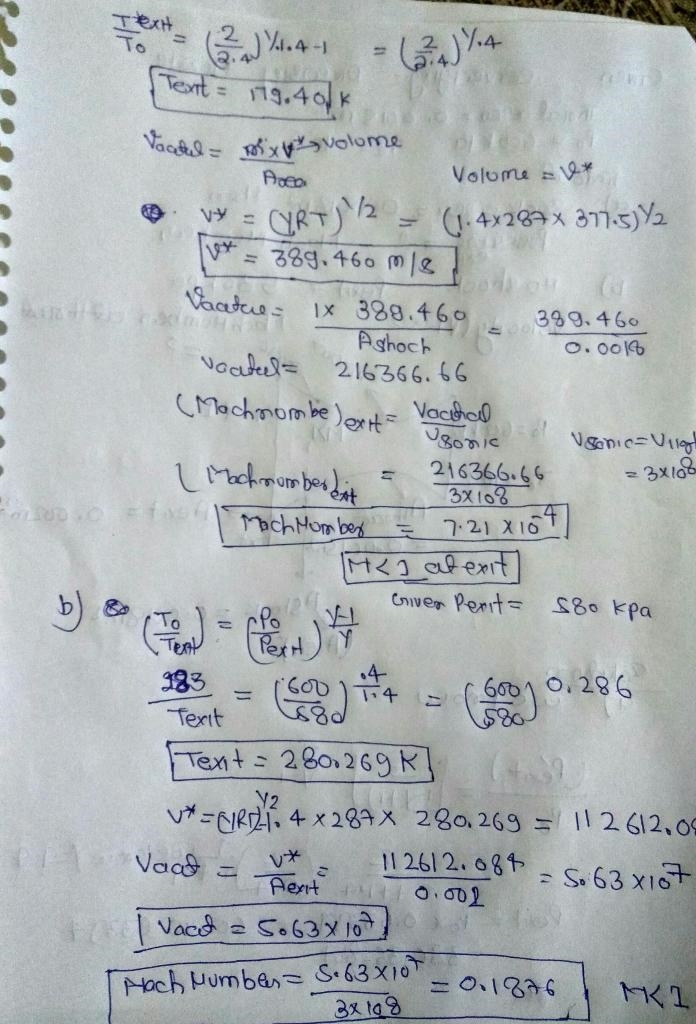 T*exit/To = (2/2.4)^1/1.4-1 = (2/2.4)^1/.4
Texit = 179.401 K
Vactual = m × v* → volome / Area
Volume = v*
v* = (γRT)^1/2 = (1.4×287×377.5)^1/2
v* = 389.460 m/s
Vactue = 1× 389.460 / Ashock = 389.460 / 0.0018
Vactul = 216366.66
(Machnombe)exit = Vactual / Vsonic
Vsonic = Vlight
(Machnomber)exit = 216366.66 / 3×10^8
= 3×10^8
Mach Number = 7.21 × 10^-4
M<1 at exit
b) (To/Texit) = (Po/Pexit)^γ-1/γ
Given Pexit = 580 kpa
283/Texit = (600/580)^.4/1.4 = (600/580)^0.286
Texit = 280.269 K
v* = (γRT)^1/2 1.4 × 287 × 280.269 = 112612.08
Vact = v*/Aexit = 112612.084 / 0.002 = 5.63 ×10^7
Vact = 5.63×10^7
Mach Number = 5.63×10^7 / 3×10^8 = 0.1876 M<1